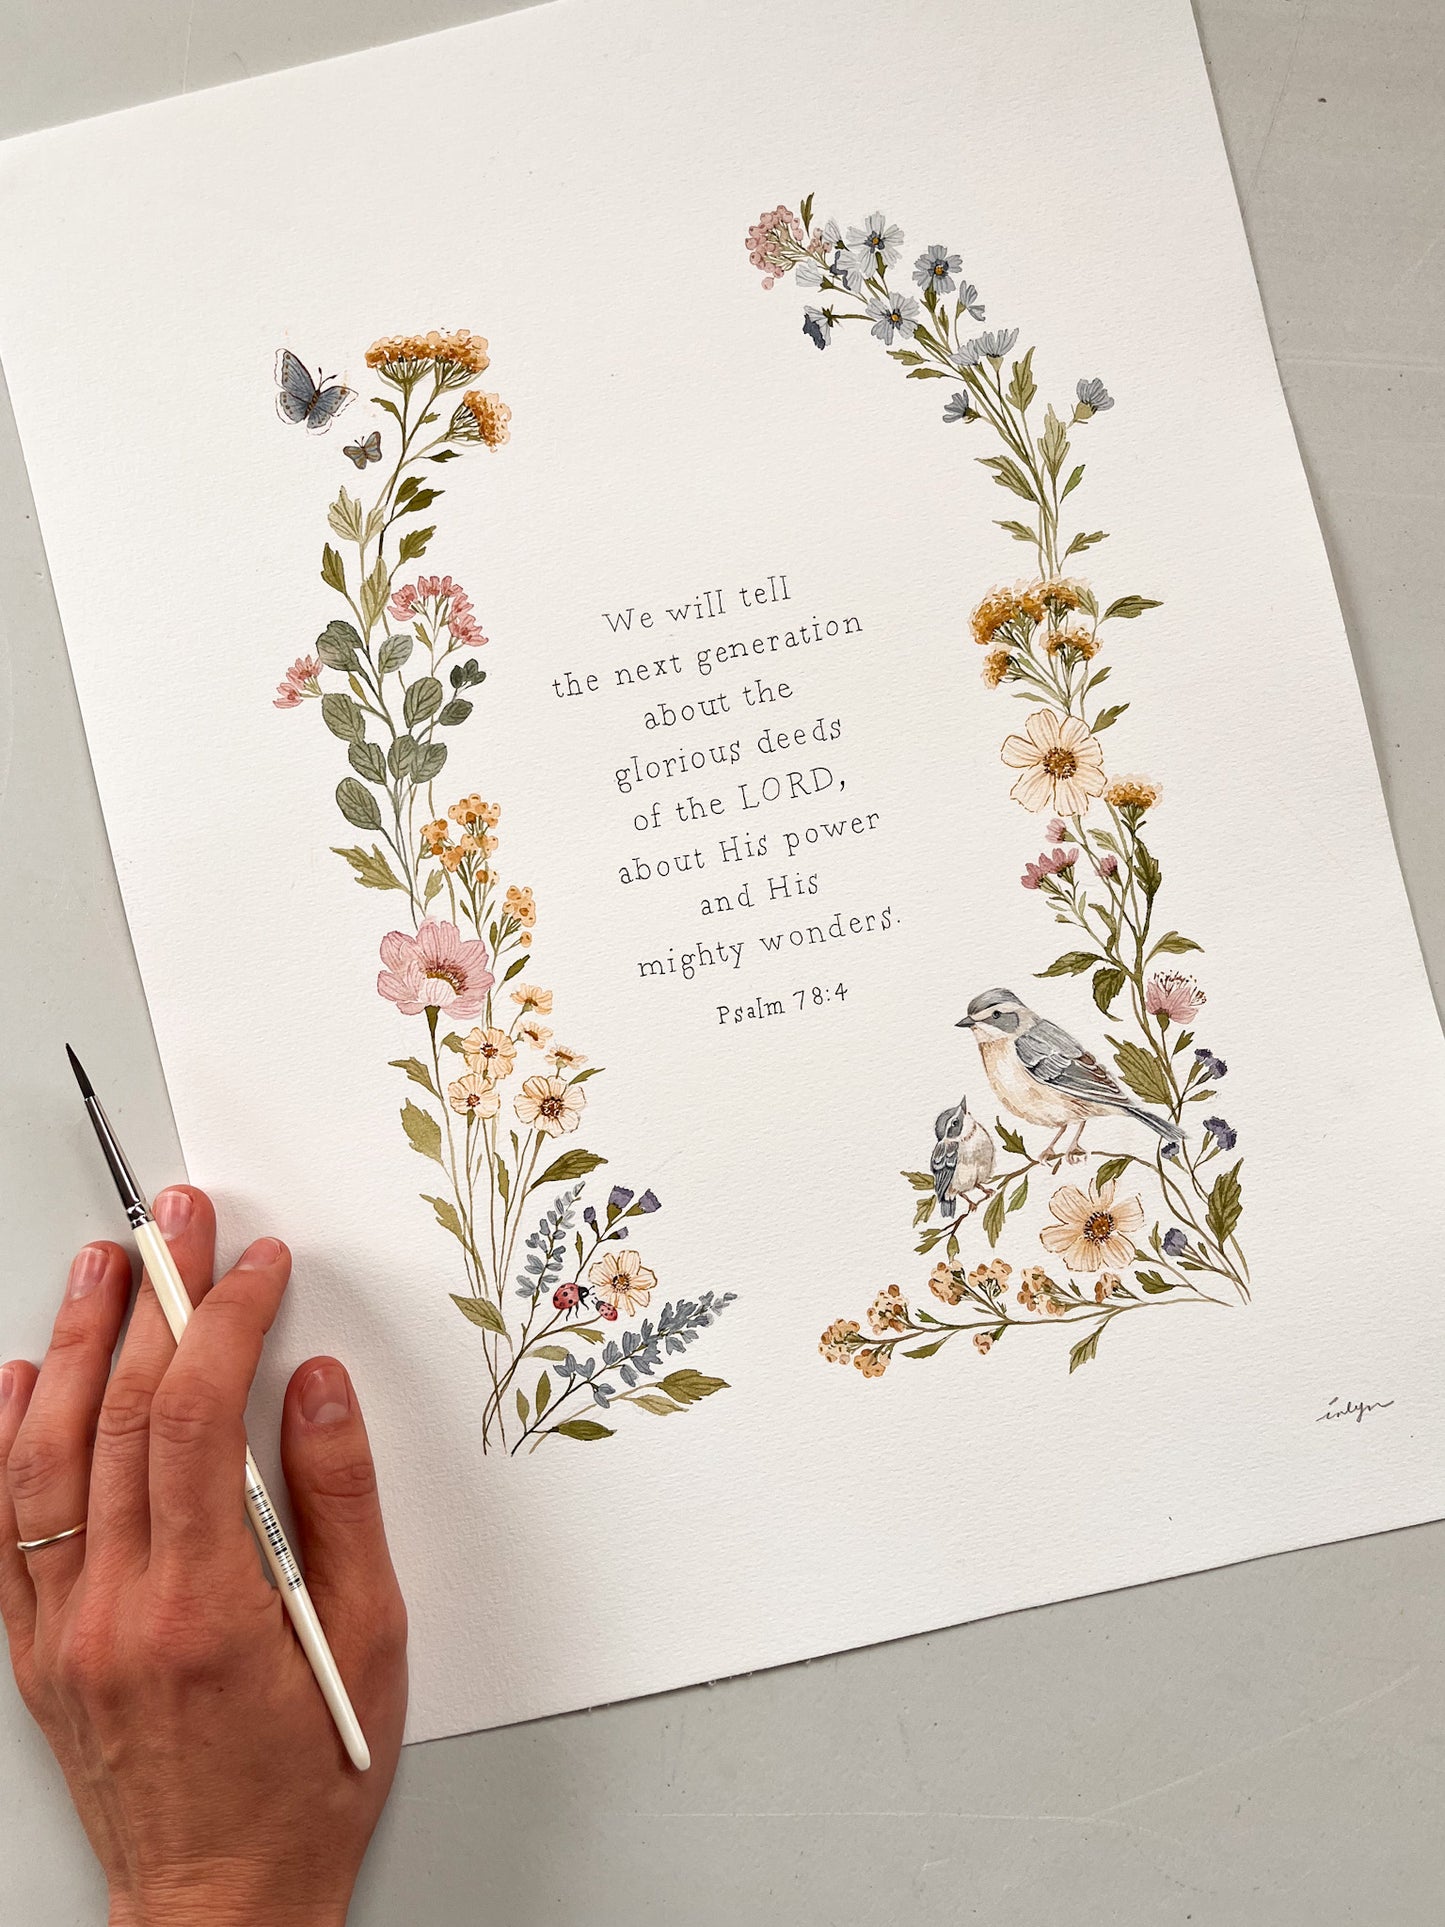 We will tell
the next generation
about the
glorious deeds
of the LORD,
about His power
and His
mighty wonders.
Psalm 78:4
inlyn